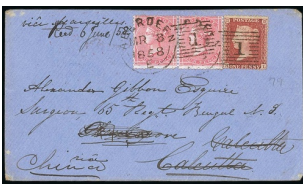 via Marseilles
Recd 6 June 1858
1858
1
1
Alexander Gibbon Esquire
Surgeon 65 Regt Bengal N. I.
Calcutta
via
China
Calcutta